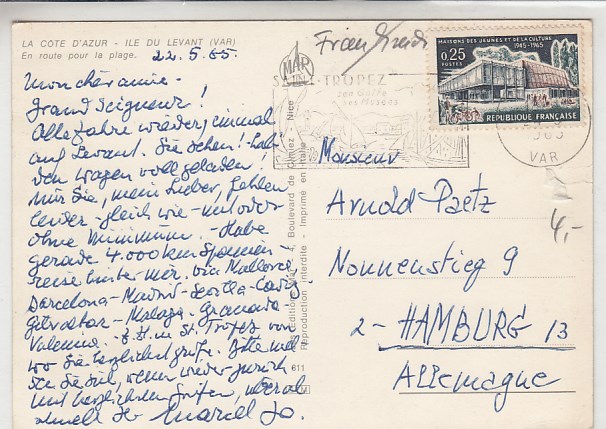 LA CÔTE D'AZUR - ILE DU LEVANT (VAR)
En route pour la plage.
22.5.65.
Mon cher amie -
Grand Seigneur!
Alle Jahre wieder, einmal
auf Levant. Sie sehen!
den Wagen vollgeladen!
Nur Sie, mein Lieber, fehlen
leider - gleich wie - mit oder
ohne Minimum. - Habe
gerade 4.000 km Spanien-
reise hinter mir. via Mallorca
Barcelona - Madrid - Sevilla - Cadiz
Gibraltar - Malaga - Granada -
Valencia. z. Zt. in St. Tropez von
wo Sie herzlichst grüße. Bitte
Sie wieder zurück
mit herzlichen Grüßen,
Ihr Marcel
Editions
4, Boulevard de Cimiez - Nice
Reproduction interdite - Imprimé en Italie
611
MAR
ST-TROPEZ
son Golfe
ses Musées
MAISONS DES JEUNES ET DE LA CULTURE
1945-1965
0,25
POSTES
REPUBLIQUE FRANÇAISE
VAR
Monsieur
Arnold Paetz
Nonnenstieg 9
2 - HAMBURG 13
Allemagne
4,-